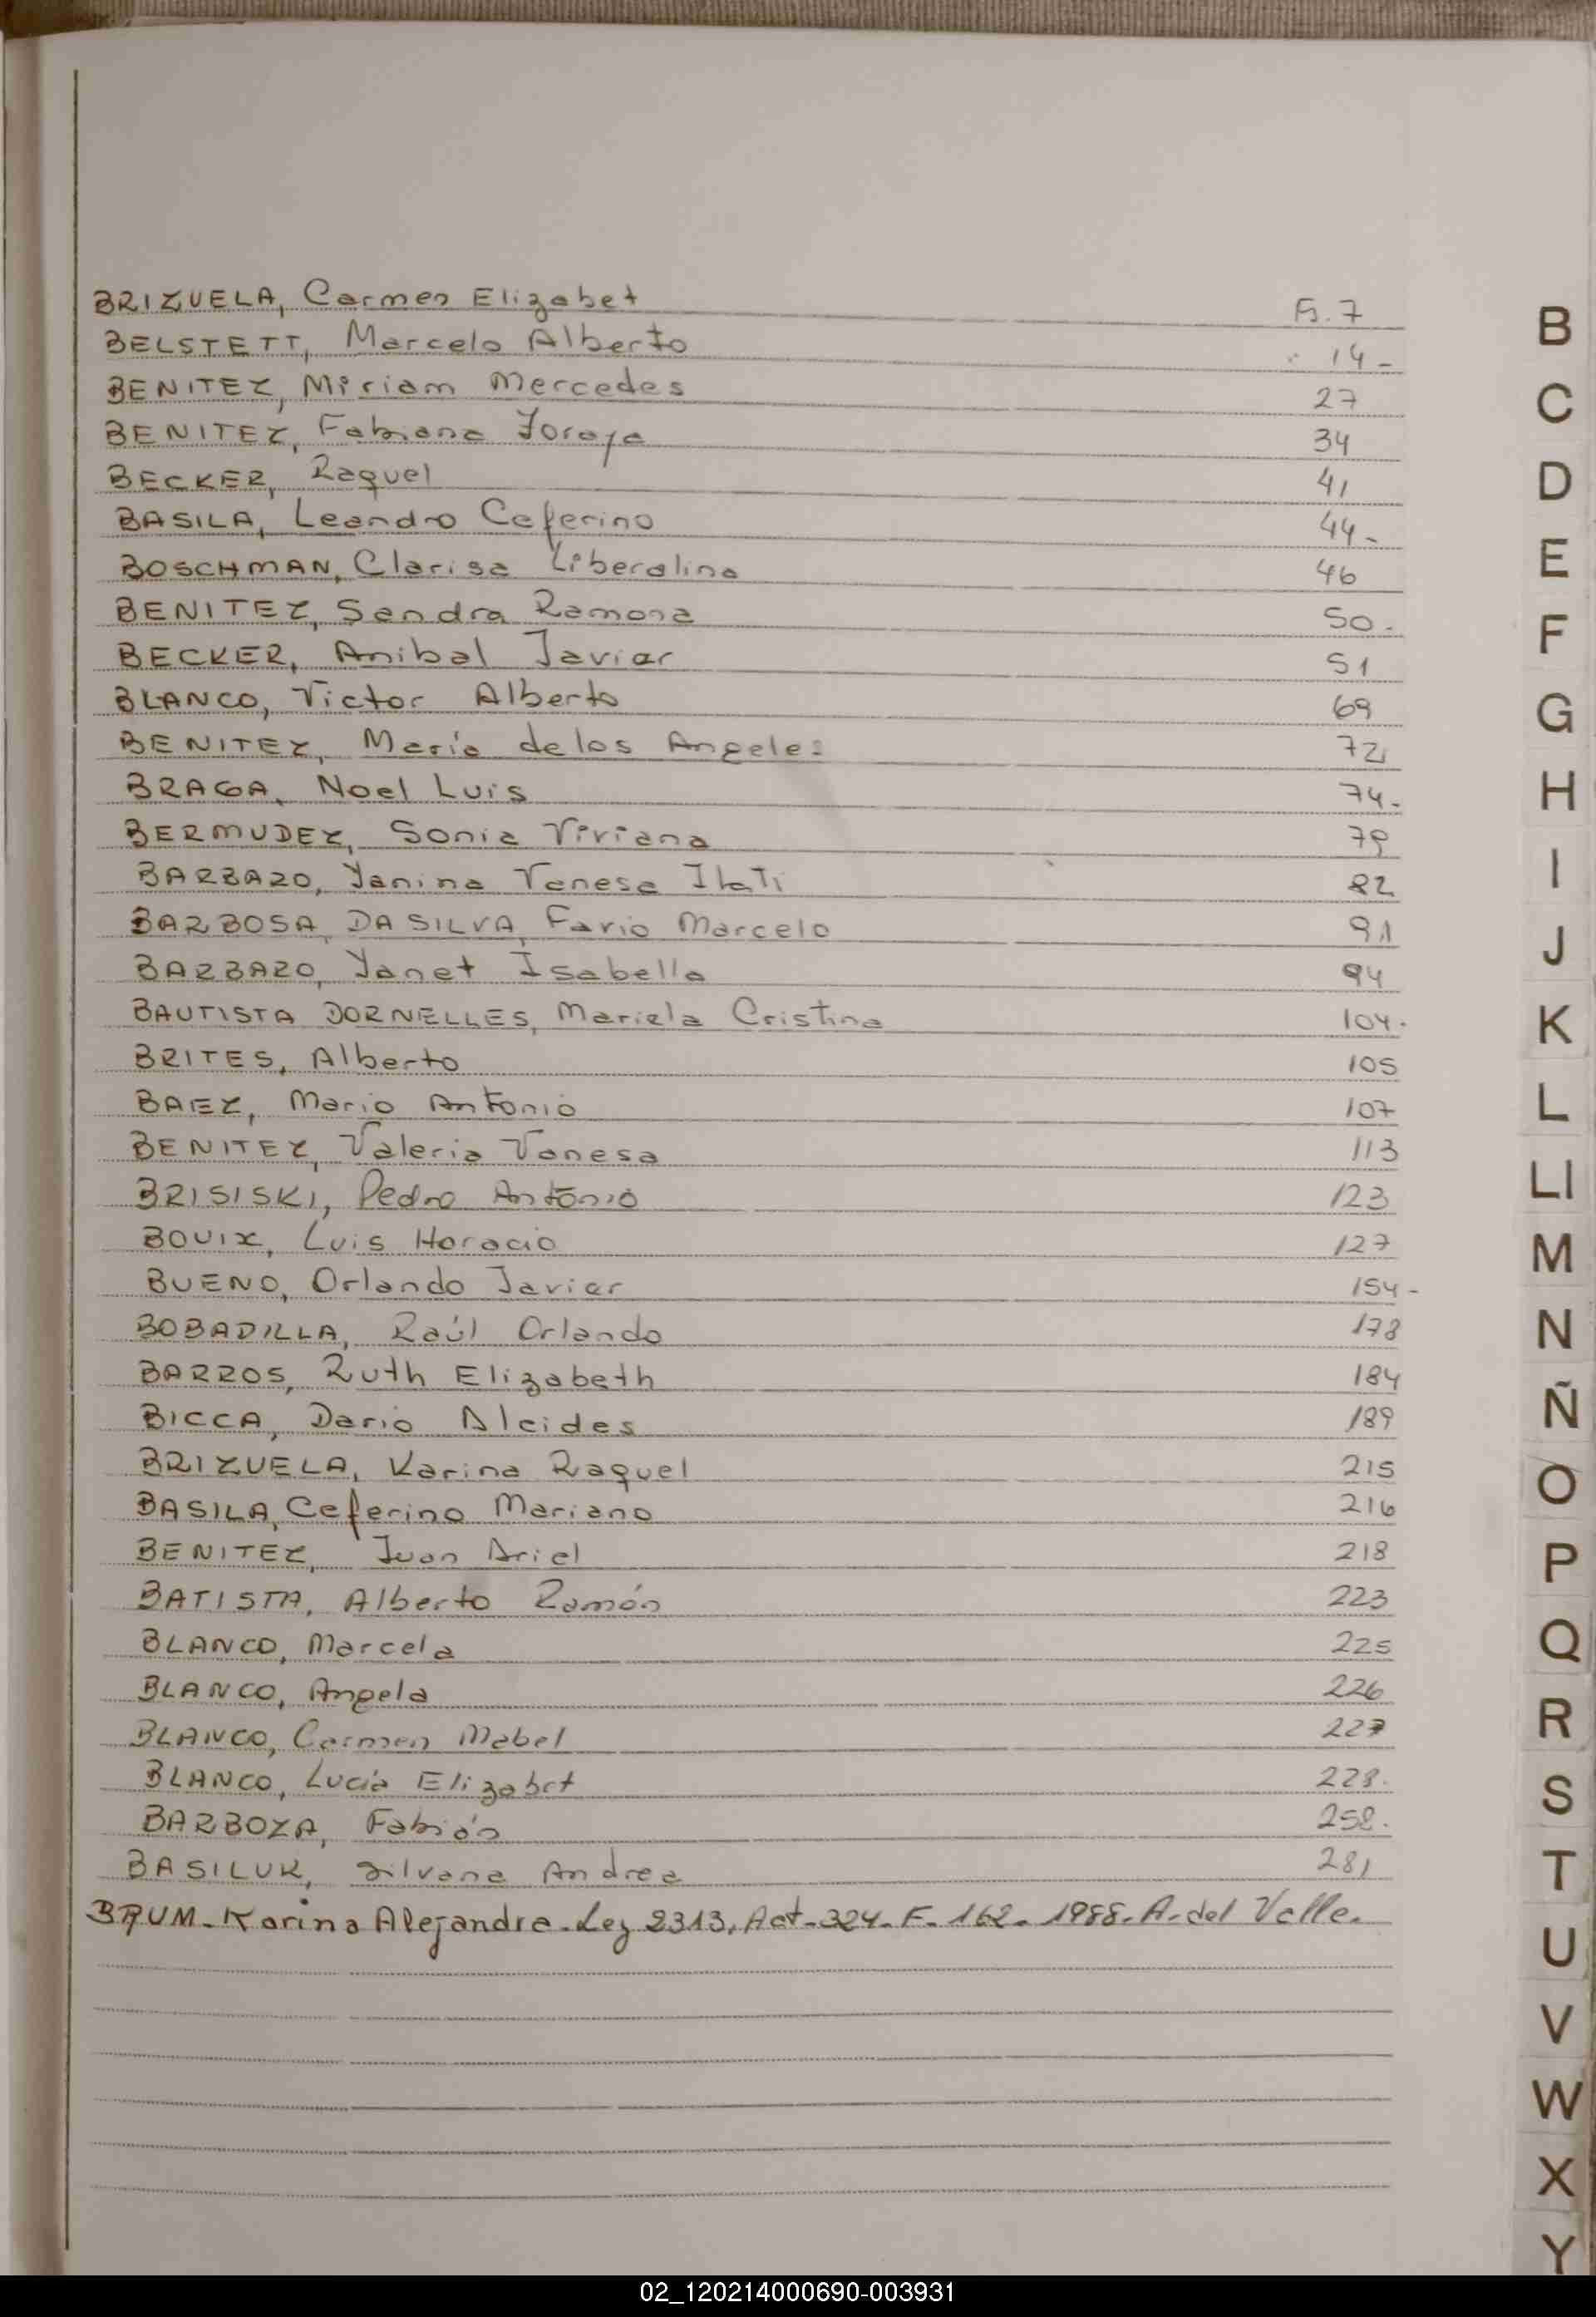 BRIZUELA, Carmen Elizabet Fs. 7
BELSTETT, Marcelo Alberto " 14-
BENITEZ, Miriam Mercedes 27
BENITEZ, Fabiana Soraya 34
BECKER, Raquel 41
BASILA, Leandro Ceferino 44-
BOSCHMAN, Clarisa Liberalina 46
BENITEZ, Sandra Ramona 50-
BECKER, Anibal Javier 51
BLANCO, Victor Alberto 69
BENITEZ, María de los Angeles 72
BRAGA, Noel Luis 74-
BERMUDEZ, Sonia Viviana 79
BARBARO, Yanina Vanesa Itati 82
BARBOSA DA SILVA, Favio Marcelo 91
BARBARO, Yanet Isabella 94
BAUTISTA DORNELLES, Mariela Cristina 104-
BRITES, Alberto 105
BAEZ, Mario Antonio 107
BENITEZ, Valeria Vanesa 113
BRISISKI, Pedro Antonio 123
BOUIX, Luis Horacio 127
BUENO, Orlando Javier 154-
BOBADILLA, Raúl Orlando 178
BARROS, Ruth Elizabeth 184
BICCA, Dario Alcides 189
BRIZUELA, Karina Raquel 215
BASILA, Ceferino Mariano 216
BENITEZ, Juan Ariel 218
BATISTA, Alberto Ramón 223
BLANCO, Marcela 225
BLANCO, Angela 226
BLANCO, Carmen Mabel 227
BLANCO, Lucía Elizabet 228.
BARBOZA, Fabián 258.
BASILUK, Silvana Andrea 281
BRUM- Karina Alejandra. Ley 2313, Act-324. F. 162. 1988. A. del Valle.
B
C
D
E
F
G
H
I
J
K
L
Ll
M
N
Ñ
O
P
Q
R
S
T
U
V
W
X
Y
02_120214000690-003931